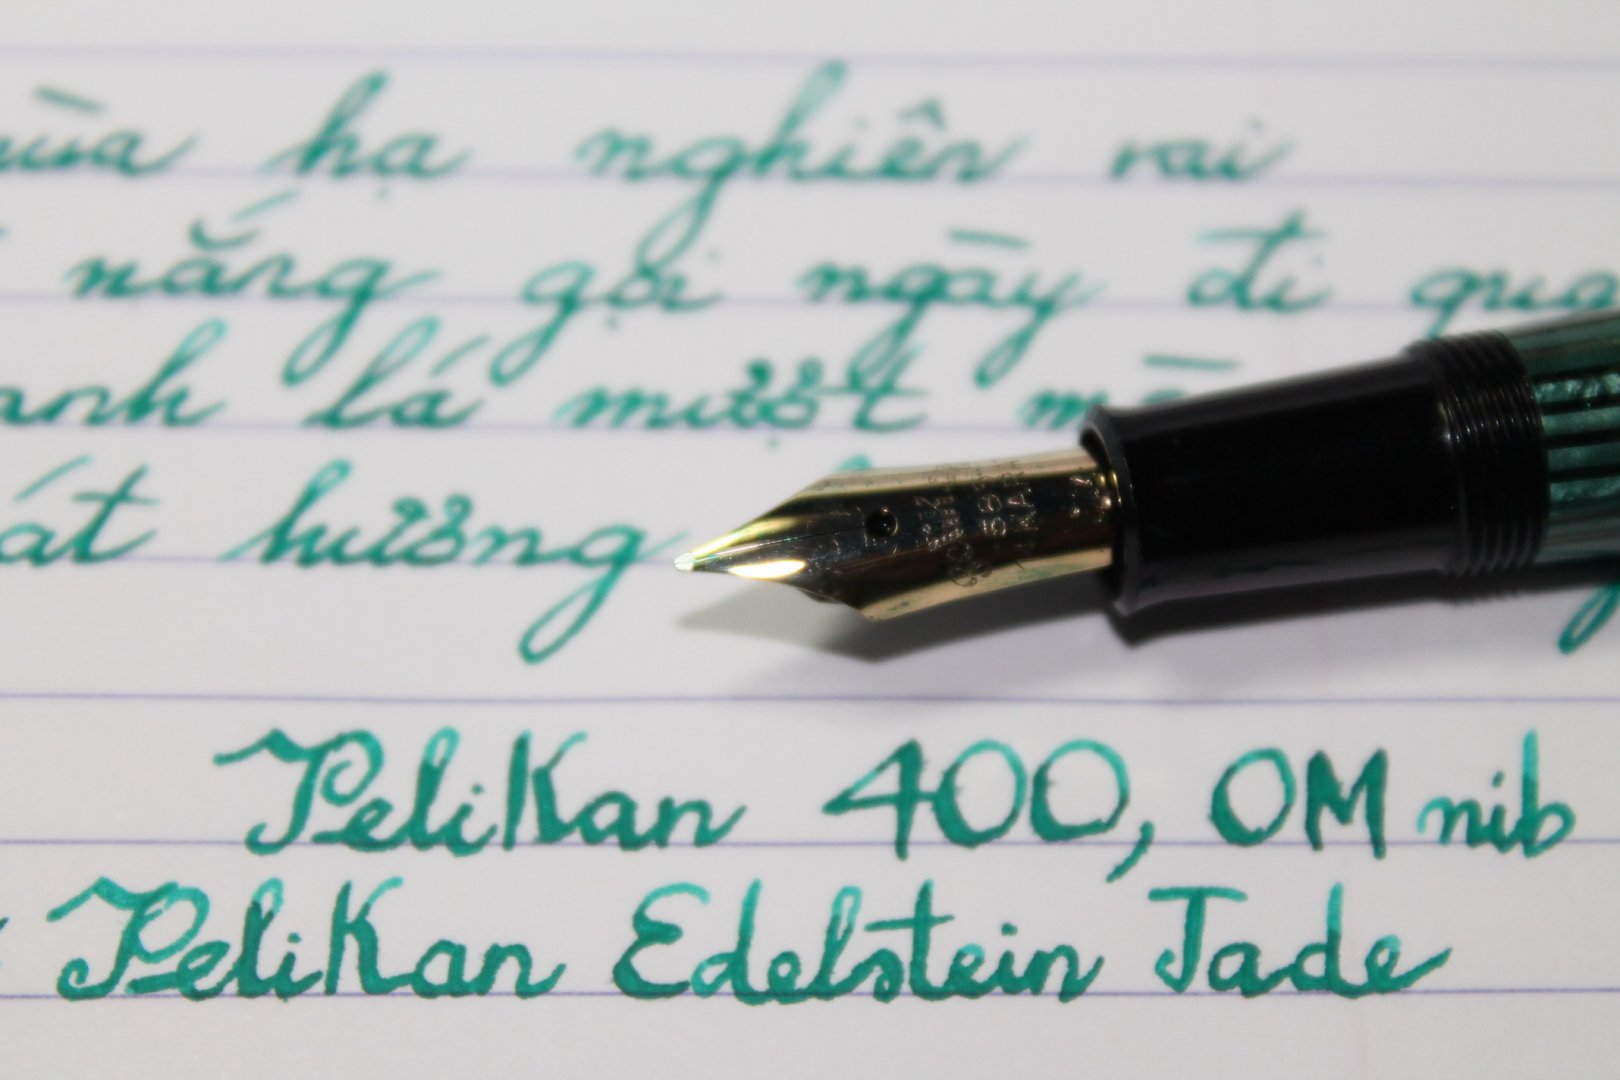 hạ nghiên vai
nắng gọi ngày đi qua
lá mướt
hường
Pelikan 400, OM nib
Pelikan Edelstein Jade